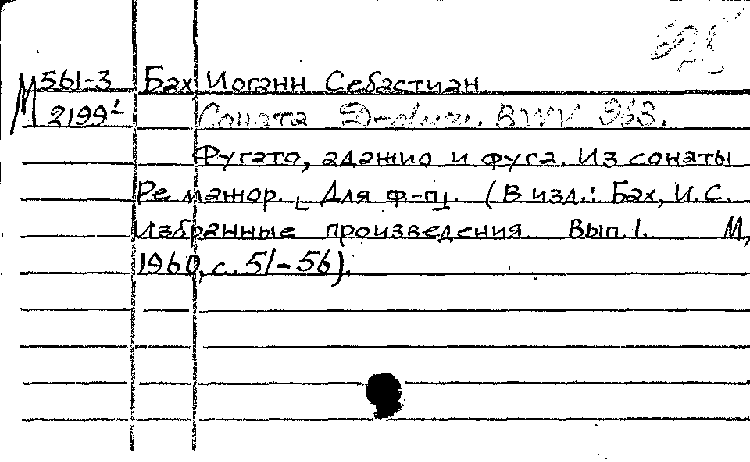 М 561-3 Бах Иоганн Себастиан
2199² Соната D-dur. BWV 963.
Фугато, адажио и фуга. Из сонаты
Ре мажор. [Для ф-п]. (В изд.: Бах, И.С.
Избранные произведения. Вып.1. М,
1960, с. 51-56).